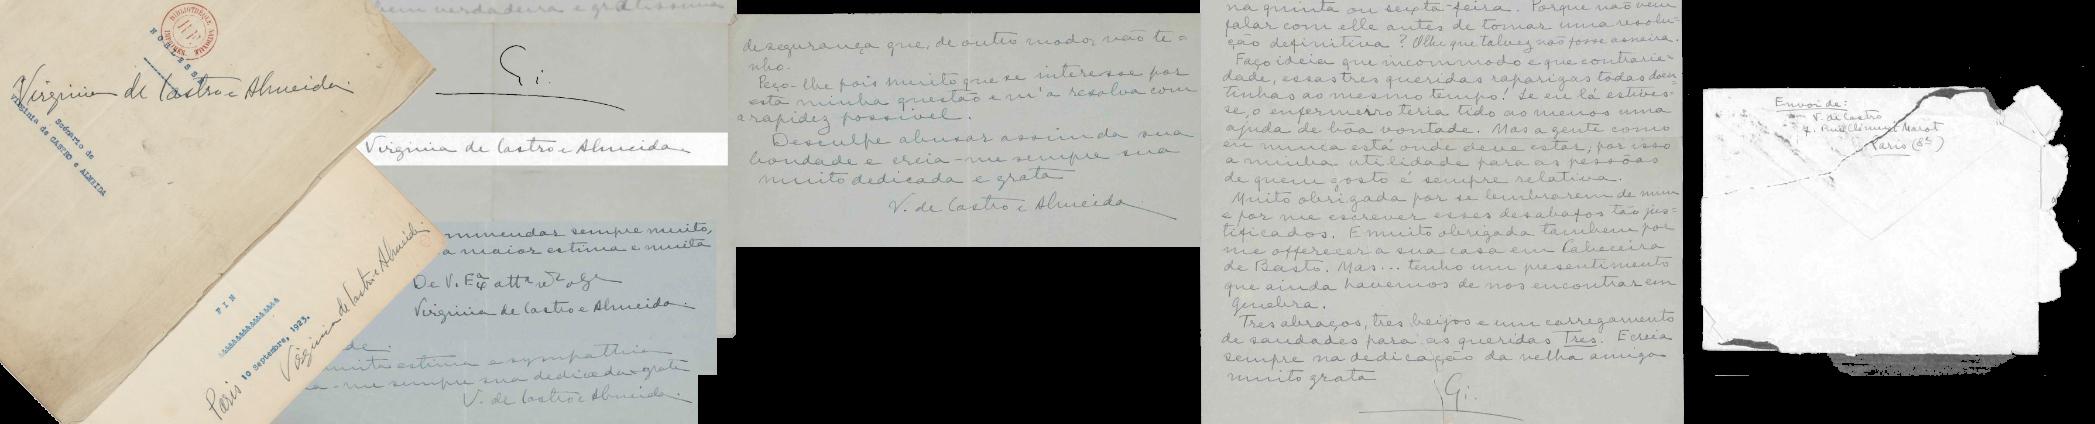 BIBLIOTHÈQUE NATIONALE
Virginia de Castro e Almeida
Scénario de
Virginia de CASTRO e ALMEIDA
FIN
Paris 10 Septembre, 1923.
Virginia de Castro e Almeida
verdadeira e gratissima
Gi.
Virginia de Castro e Almeida
mmendar sempre muito,
a maior estima e muita
De V. Exª attª
Virginia de Castro e Almeida.
de.
muita estima e sympathia
-me sempre sua dedicada e grata
V. de Castro e Almeida.
de segurança que, de outro modo, não te=
nho.
Peço-lhe pois muito que se interesse por
esta minha questão e m'a resolva com
a rapidez possivel.
Desculpe abusar assim da sua
bondade e creia-me sempre sua
muito dedicada e grata
V. de Castro e Almeida.
na quinta ou sexta-feira. Porque não vem
falar com elle antes de tomar uma resolu=
ção definitiva? Olhe que talvez não fosse asneira.
Faço ideia que incommodo e que contrarie=
dade, essas tres queridas raparigas todas doen=
tinhas ao mesmo tempo! Se eu lá estives=
se, o enfermeiro teria tido ao menos uma
ajuda de bôa vontade. Mas a gente como
eu nunca está onde deve estar; por isso
a minha utilidade para as pessôas
de quem gosto é sempre relativa.
Muito obrigada por se lembrarem de mim
e por me escrever esses desabafos tão jus=
tificados. E muito obrigada tambem por
me offerecer a sua casa em Cabeceira
de Basto. Mas... tenho um presentimento
que ainda havemos de nos encontrar em
Genebra.
Tres abraços, tres beijos e um carregamento
de saudades para as queridas Tres. E creia
sempre na dedicação da velha amiga
muito grata
Gi.
Envoi de:
V. de Castro
Rue Clément Marot
Paris (8e)